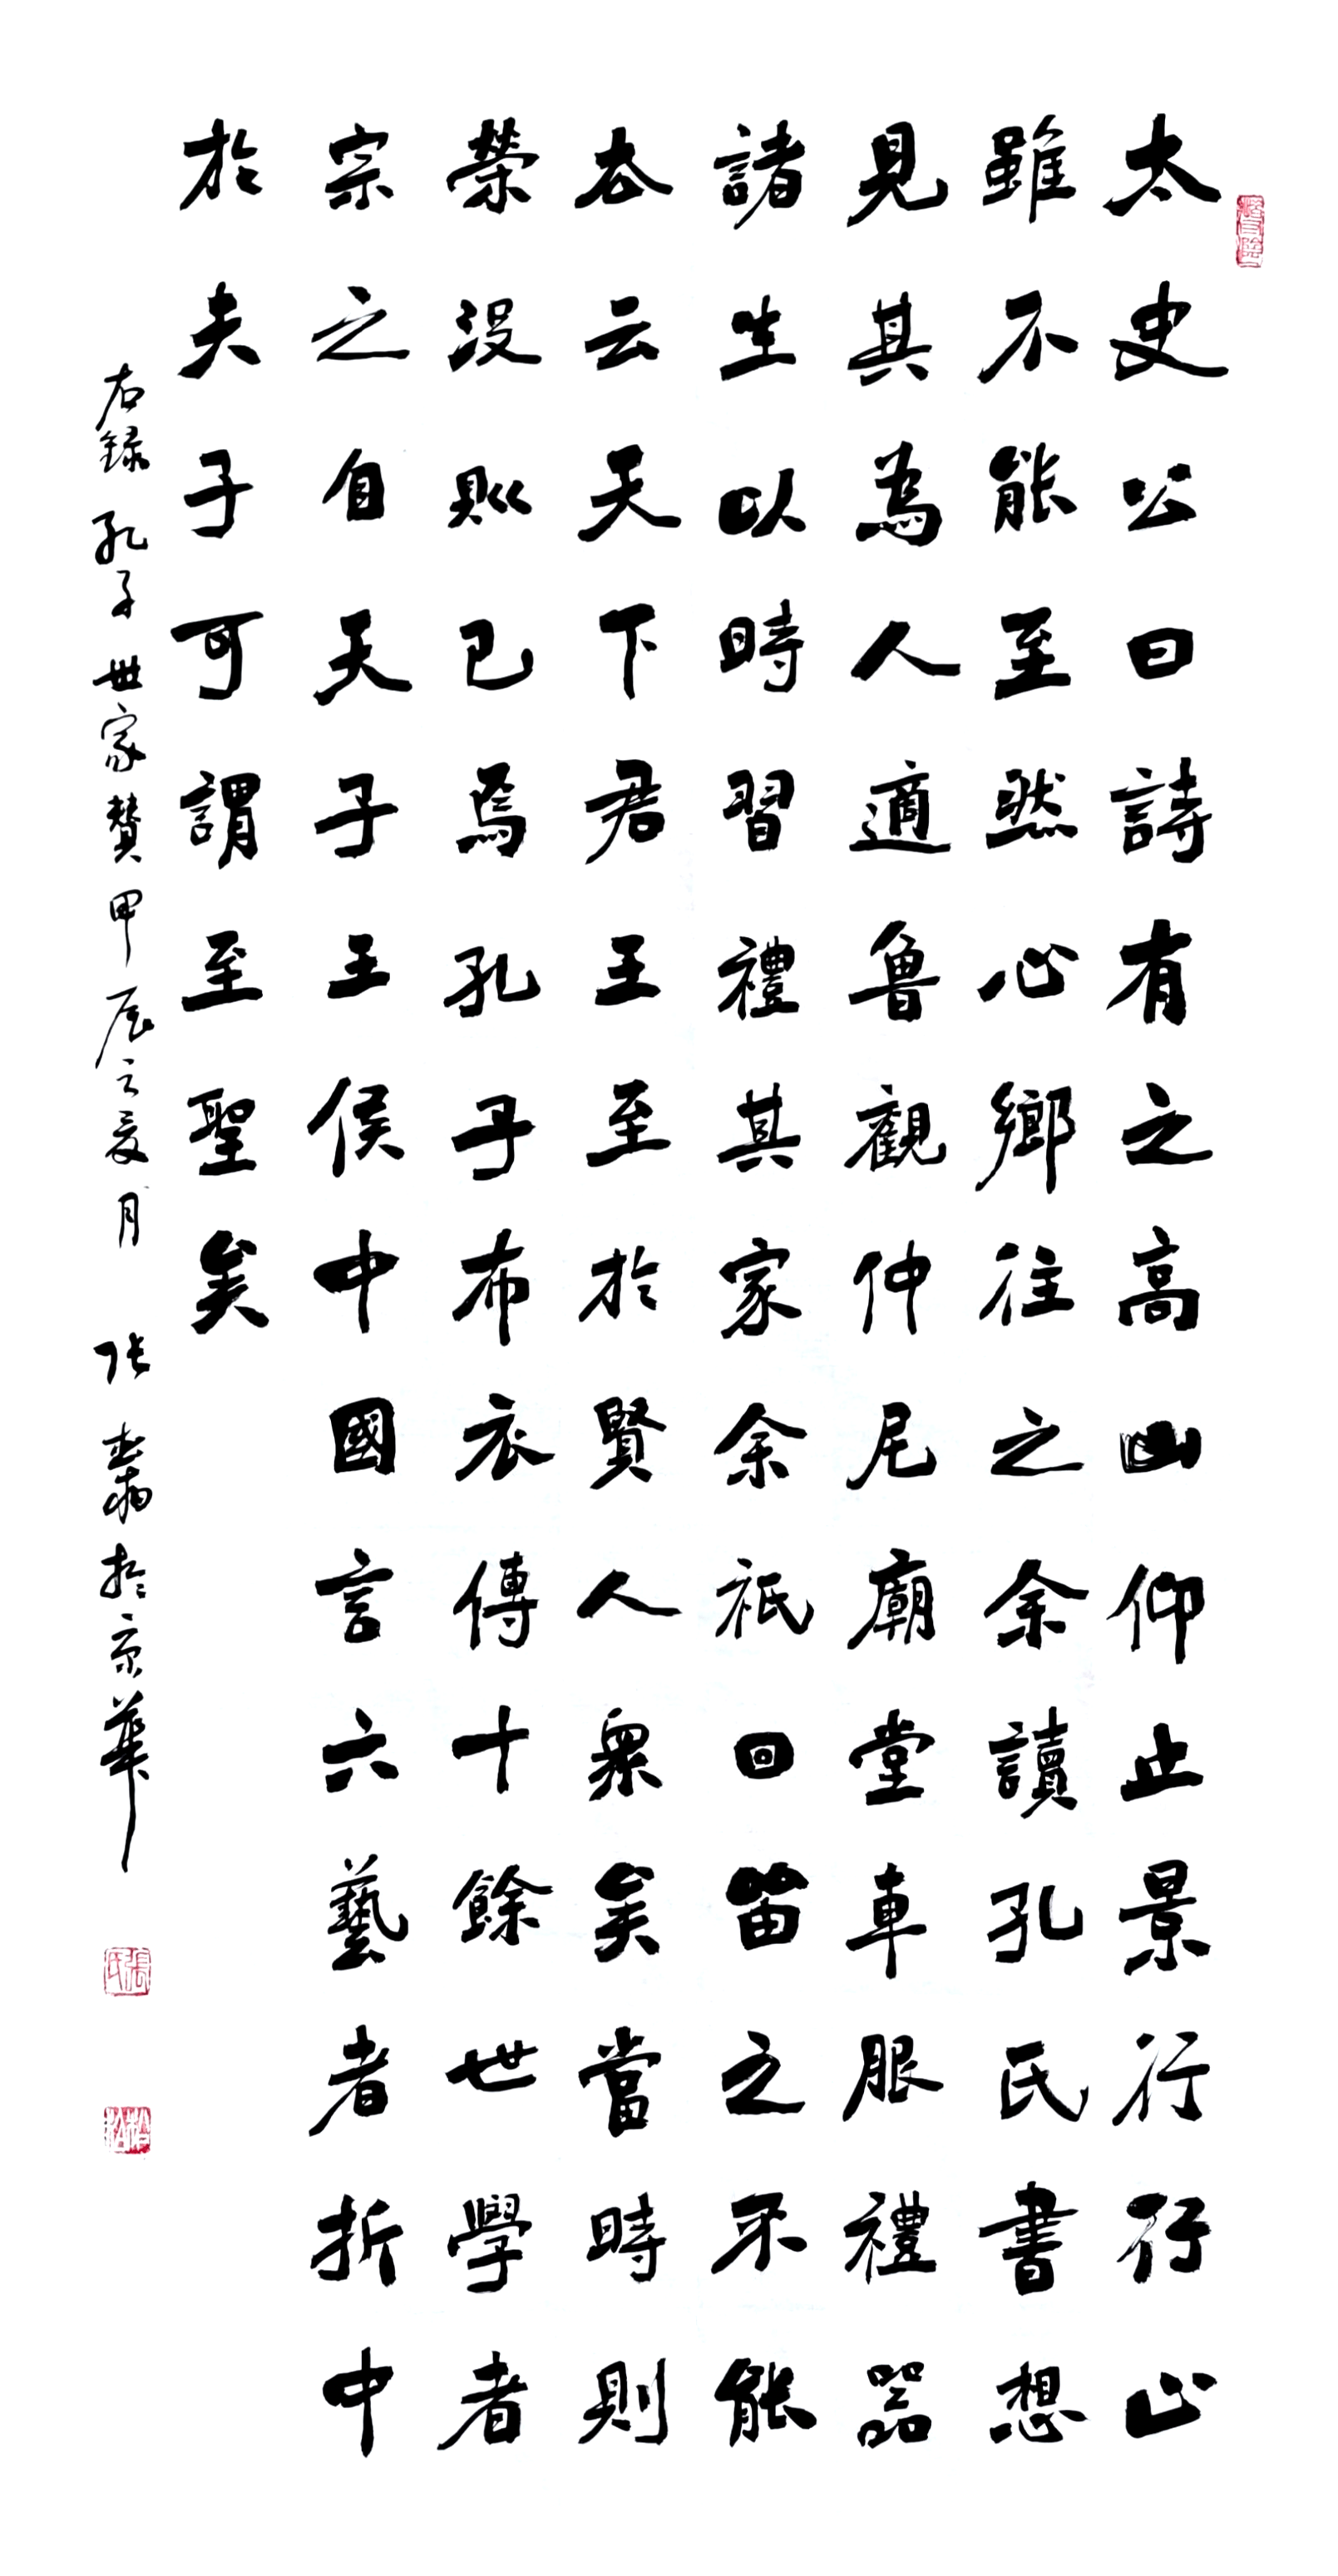 太史公曰詩有之高山仰止景行行止
雖不能至然心鄉往之余讀孔氏書想
見其為人適魯觀仲尼廟堂車服禮器
諸生以時習禮其家余祇回留之不能
去云天下君王至於賢人眾矣當時則
榮沒則已焉孔子布衣傳十餘世學者
宗之自天子王侯中國言六藝者折中
於夫子可謂至聖矣
右録孔子世家贊甲辰之夏月 張翥於京華
張氏